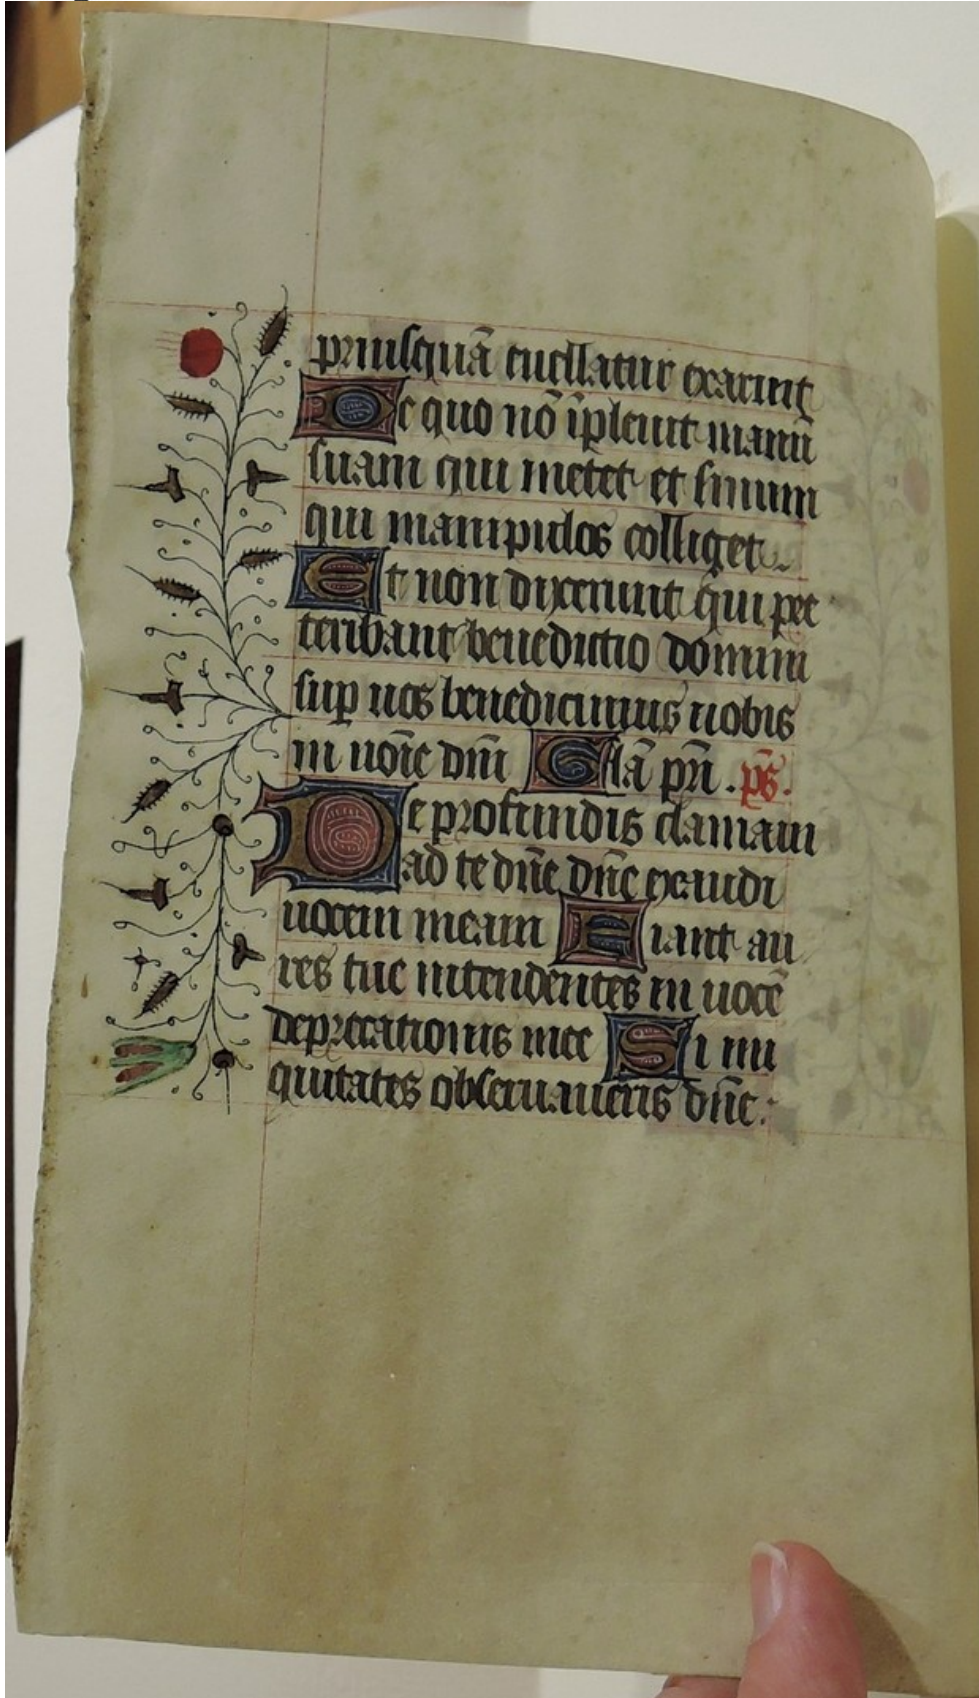 priusquā euellatur exaruit
De quo nō īpleuit manū
suam qui metet et sinum
qui manipulos colliget
Et non dixerunt qui pre
teribant benedictio domini
sup uos benediximus uobis
in noīe dnī Glā pri . ps .
De profundis clamaui
ad te dñe dñe exaudi
uocem meam Fiant au
res tue intendentes in uocē
deprecationis mee Si ini
quitates obseruaueris dñe :